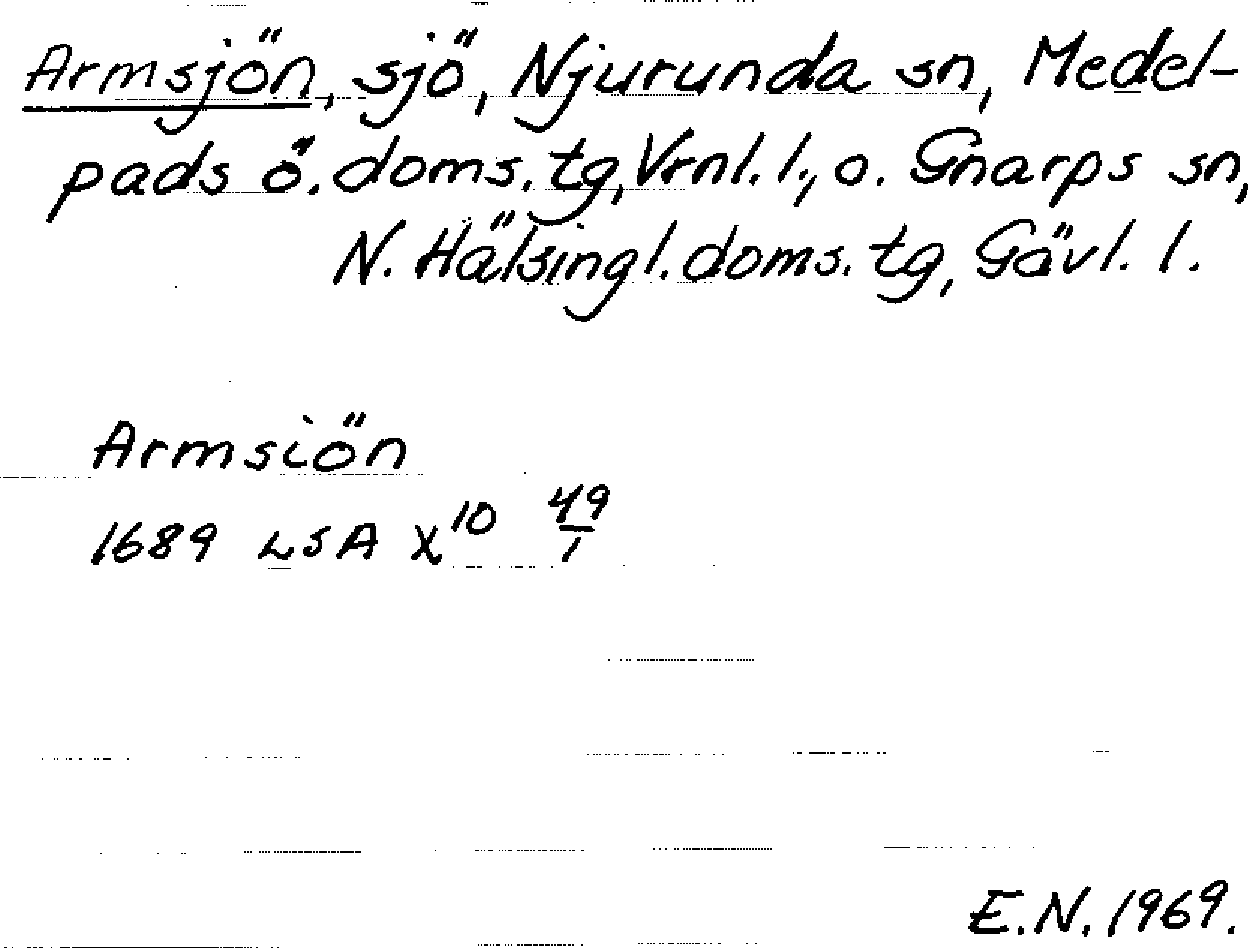 Armsjön, sjö, Njurunda sn, Medel-
pads ö. doms. tg, Vrnl. l., o. Gnarps sn,
N. Hälsingl. doms. tg, Gävl. l.
Armsiön
1689 LSA X¹⁰ 49/1
E.N. 1969.